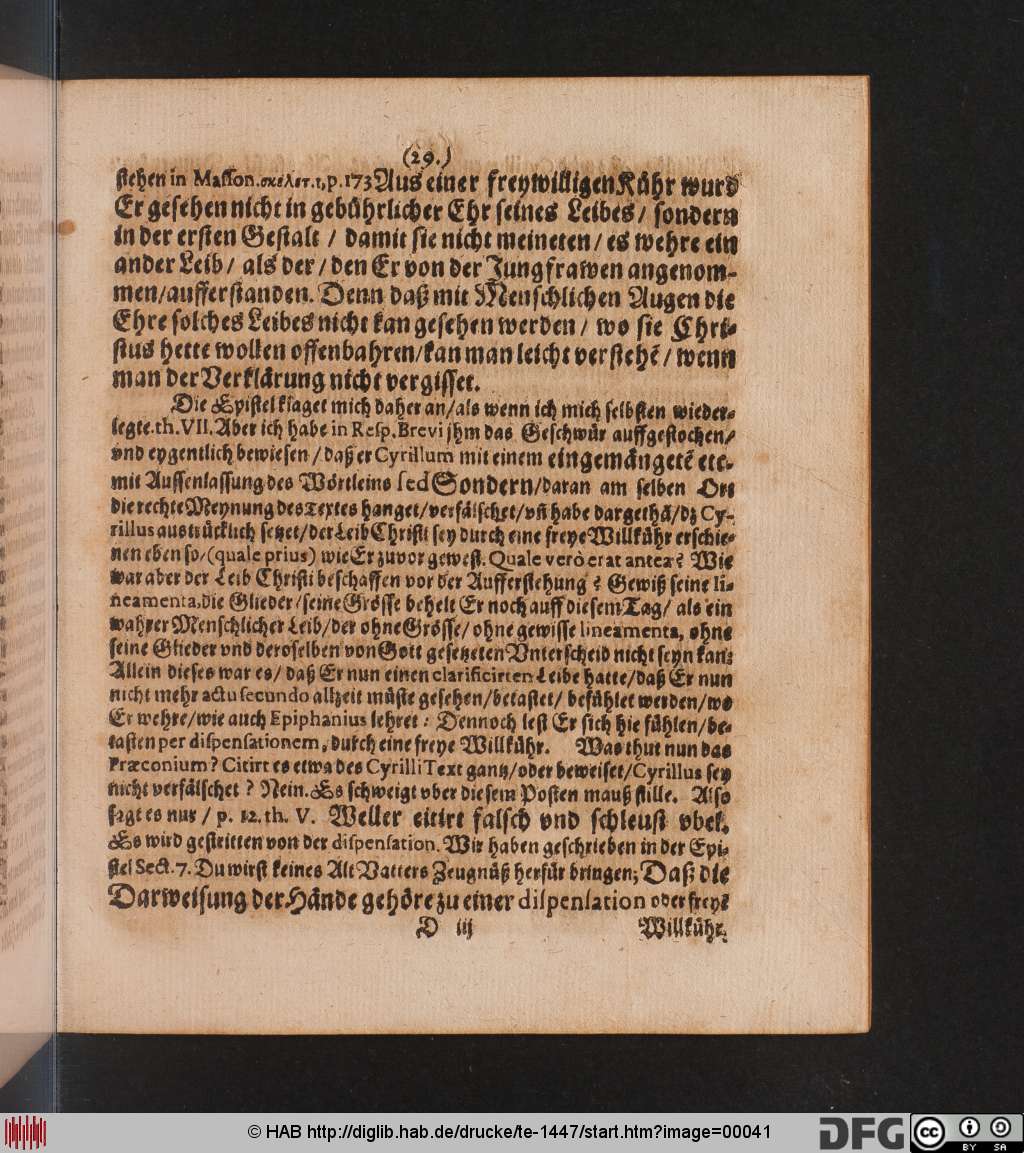 (29.)
stehen in Masson. σκελετ. 1, p. 173 Aus einer freywilligen Kühr wurd
Er gesehen nicht in gebührlicher Ehr seines Leibes / sondern
in der ersten Gestalt / damit sie nicht meineten / es wehre ein
ander Leib / als der / den Er von der Jungfrawen angenom-
men / aufferstanden. Denn daß mit Menschlichen Augen die
Ehre solches Leibes nicht kan gesehen werden / wo sie Chri-
stus hette wollen offenbahren / kan man leicht verstehẽ / wenn
man der Verklärung nicht vergisset.
Die Epistel klaget mich daher an / als wenn ich mich selbsten wieder-
legte. th. VII. Aber ich habe in Resp. Brevi jhm das Geschwür auffgestochen /
vnd eygentlich bewiesen / daß er Cyrillum mit einem eingemängetẽ etc.
mit Aussenlassung des Wörtleins sed Sondern / daran am selben Ort
die rechte Meynung des Textes hanget / verfälschet / vñ habe dargethã / dz Cy-
rillus austrücklich setzet / der Leib Christi sey durch eine freye Willkühr erschie-
nen eben so / (quale prius) wie Er zuvor gewest. Quale verò erat antea? Wie
war aber der Leib Christi beschaffen vor der Aufferstehung? Gewiß seine li-
neamenta, die Glieder / seine Grösse behelt Er noch auff diesem Tag / als ein
wahrer Menschlicher Leib / der ohne Grösse / ohne gewisse lineamenta, ohne
seine Glieder vnd deroselben von Gott gesetzeten Vnterscheid nicht seyn kan:
Allein dieses war es / daß Er nun einen clarificirten Leibe hatte / daß Er nun
nicht mehr actu secundo allzeit müste gesehen / betastet / befühlet werden / wo
Er wehre / wie auch Epiphanius lehret: Dennoch lest Er sich hie fühlen / be-
tasten per dispensationem, durch eine freye Willkühr. Was thut nun das
Præconium? Citirt es etwa des Cyrilli Text gantz / oder beweiset / Cyrillus sey
nicht verfälschet? Nein. Es schweigt vber diesem Posten mauß stille. Also
sagt es nur / p. 12. th. V. Weller citirt falsch vnd schleust vbel.
Es wird gestritten von der dispensation. Wir haben geschrieben in der Epi-
stel Sect. 7. Du wirst keines Alt Vatters Zeugnüß herfür bringen; Daß die
Darweisung der Hände gehöre zu einer dispensation oder freyẽ
D iij Willkühr.
© HAB http://diglib.hab.de/drucke/te-1447/start.htm?image=00041
DFG
cc BY SA